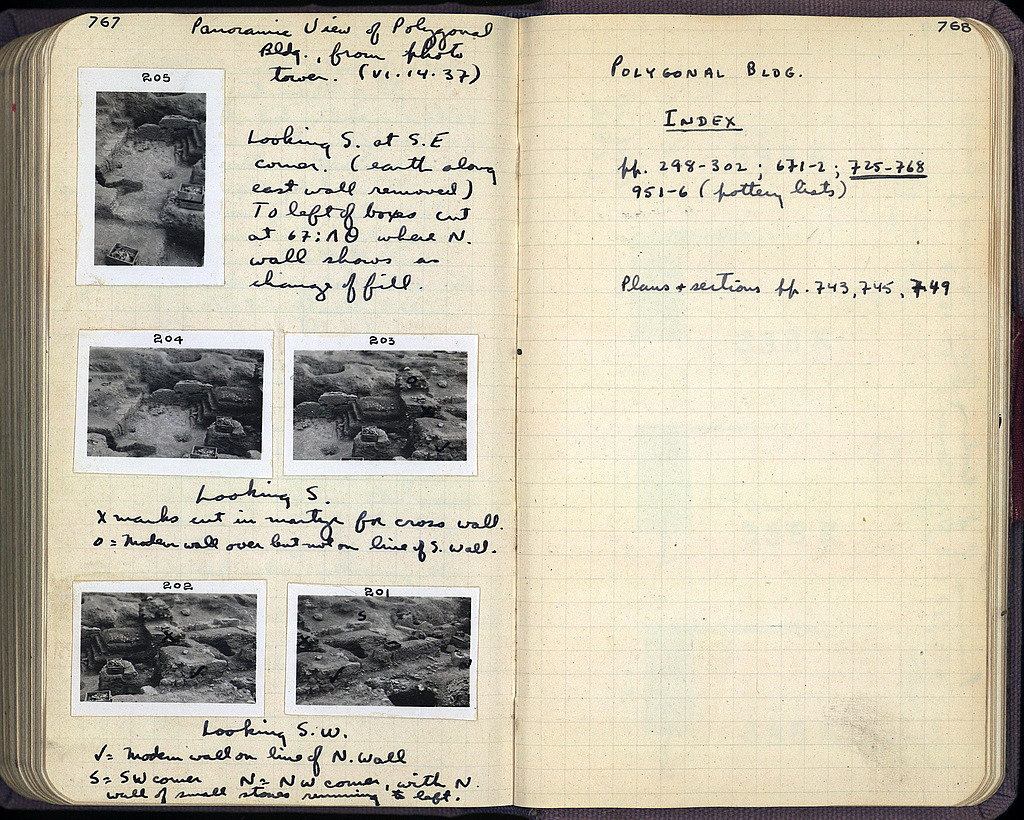 767
Panoramic View of Polygonal
Bldg., from photo
tower. (VI.14.37)
205
Looking S. at S.E
corner. (earth along
east wall removed)
To left of boxes cut
at 67:ΛΘ where N.
wall shows as
change of fill.
204
203
Looking S.
X marks cut in martyr for cross wall.
O = Modern wall over but not on line of S. Wall.
202
201
S
Looking S.W.
√= Modern wall on line of N. Wall
S= SW corner N= NW corner, with N.
wall of small stones running to left.
768
POLYGONAL BLDG.
INDEX
pp. 298-302; 671-2; 725-768
951-6 (pottery lists)
Plans + sections pp. 743, 745, 749